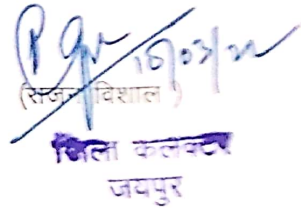 16/03/22
(राजन विशाल)
जिला कलेक्टर
जयपुर